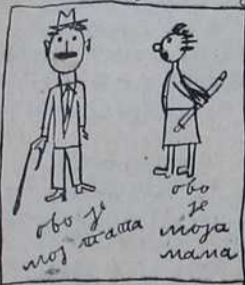 ово је
мој тата
ово
је
моја
мама